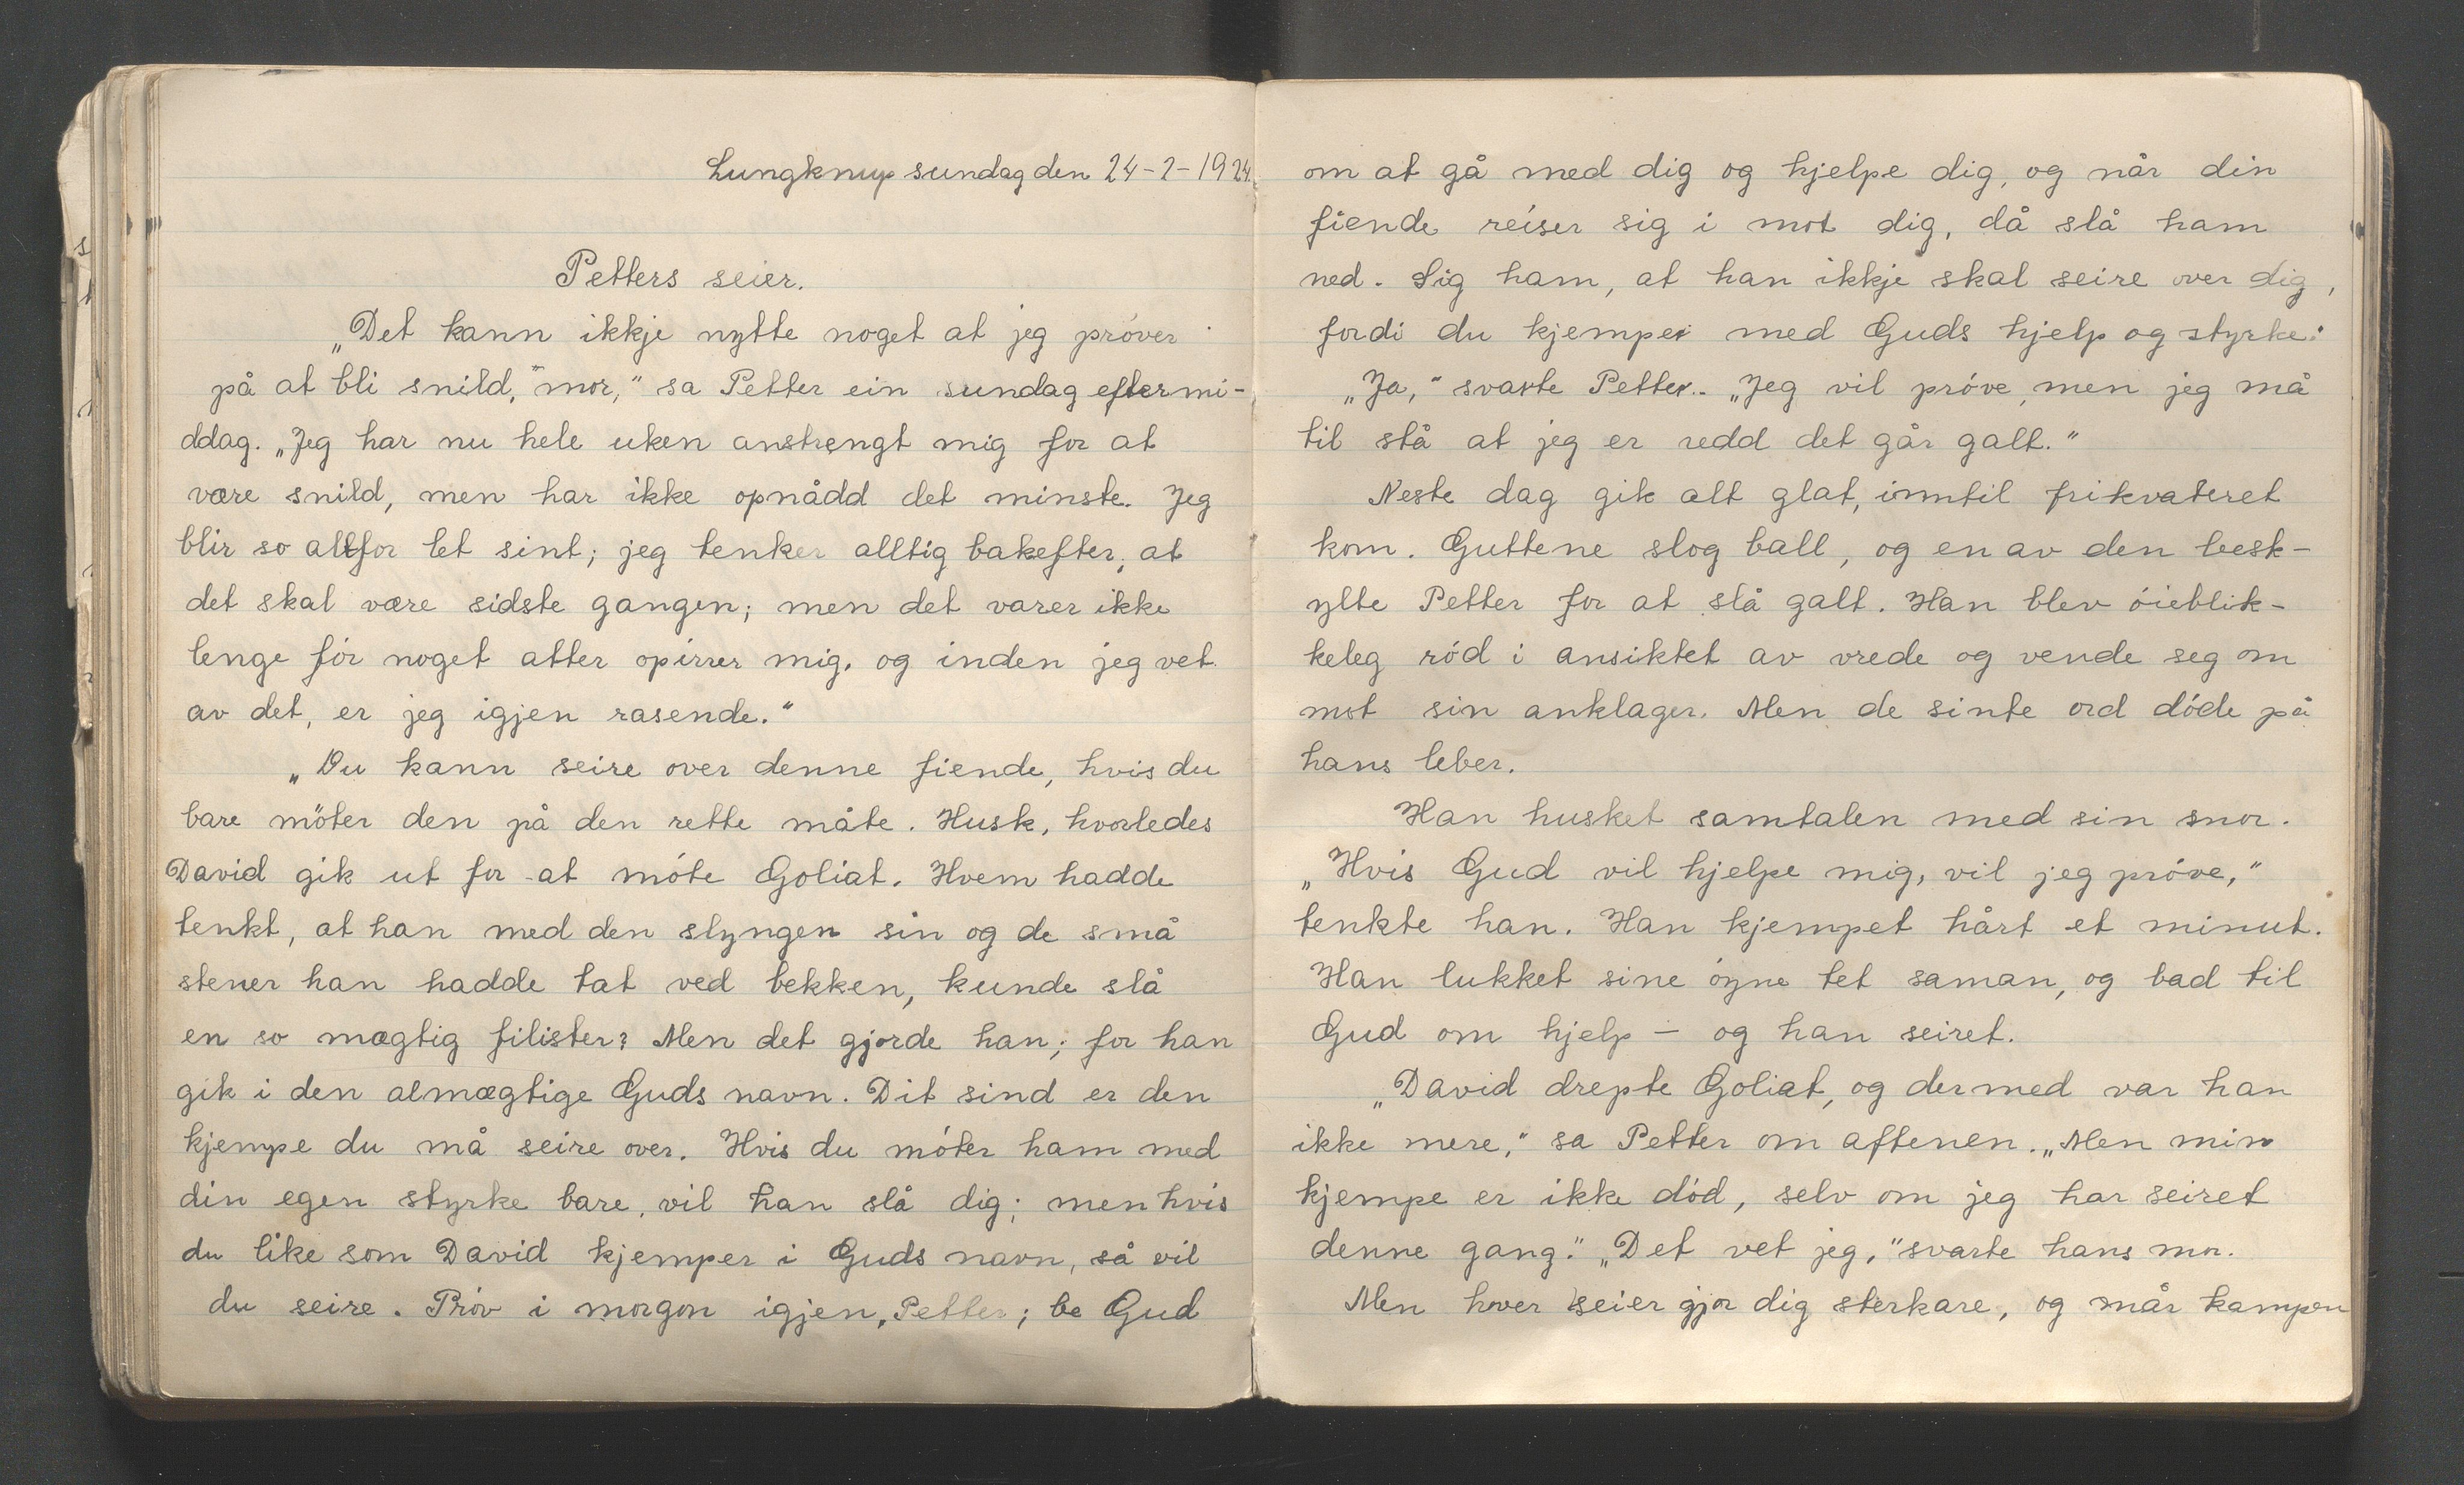 Lungknup sundag den 24-2-1924.
Petters seier.
„Det kann ikkje nytte noget at jeg próver
på at bli snild," mor," sa Petter ein sundag eftermi-
ddag. „Jeg har nu hele uken anstrengt mig for at
være snild, men har ikke opnådd det minste. Jeg
blir so altfor let sint; jeg tenker alltig bakefter, at
det skal være sidste gangen; men det varer ikke
lenge fór noget atter opirrer mig, og inden jeg vet
av det, er jeg igjen rasende."
„Du kann seire over denne fiende, hvis du
bare möter den på den rette måte. Husk, hvorledes
David gik ut for at móte Goliat. Hvem hadde
tenkt, at han med den slyngen sin og de små
stener han hadde tat ved bekken, kunde slå
en so mægtig filister? Men det gjorde han; for han
gik i den almægtige Guds navn. Dit sind er den
kjempe du må seire over. Hvis du móter ham med
din egen styrke bare, vil han slå dig; men hvis
du like som David kjemper i Guds navn, så vil
du seire. Próv i morgon igjen, Petter; be Gud
om at gå med dig og hjelpe dig, og når din
fiende reiser sig i mot dig, då slå ham
ned. Sig ham, at han ikkje skal seire over dig,
fordi du kjemper med Guds hjelp og styrke."
„Ja," svarte Petter. „Jeg vil próve, men jeg må
til stå at jeg er redd det går galt."
Neste dag gik alt glat, inntil frikvateret
kom. Guttene slog ball, og en av den besk-
ylte Petter for at slå galt. Han blev óieblik-
keleg ród i ansiktet av vrede og vende seg om
mot sin anklager. Men de sinte ord dóde på
hans leber.
Han husket samtalen med sin mor.
„Hvis Gud vil hjelpe mig, vil jeg próve,"
tenkte han. Han kjempet hårt et minut.
Han lukket sine óyne tet saman, og bad til
Gud om hjelp – og han seiret.
„David drepte Goliat, og dermed var han
ikke mere," sa Petter om aftenen. „Men min
kjempe er ikke dód, selv om jeg har seiret
denne gang." „Det vet jeg," svarte hans mor.
Men hver seier gjor dig sterkare, og når kampen